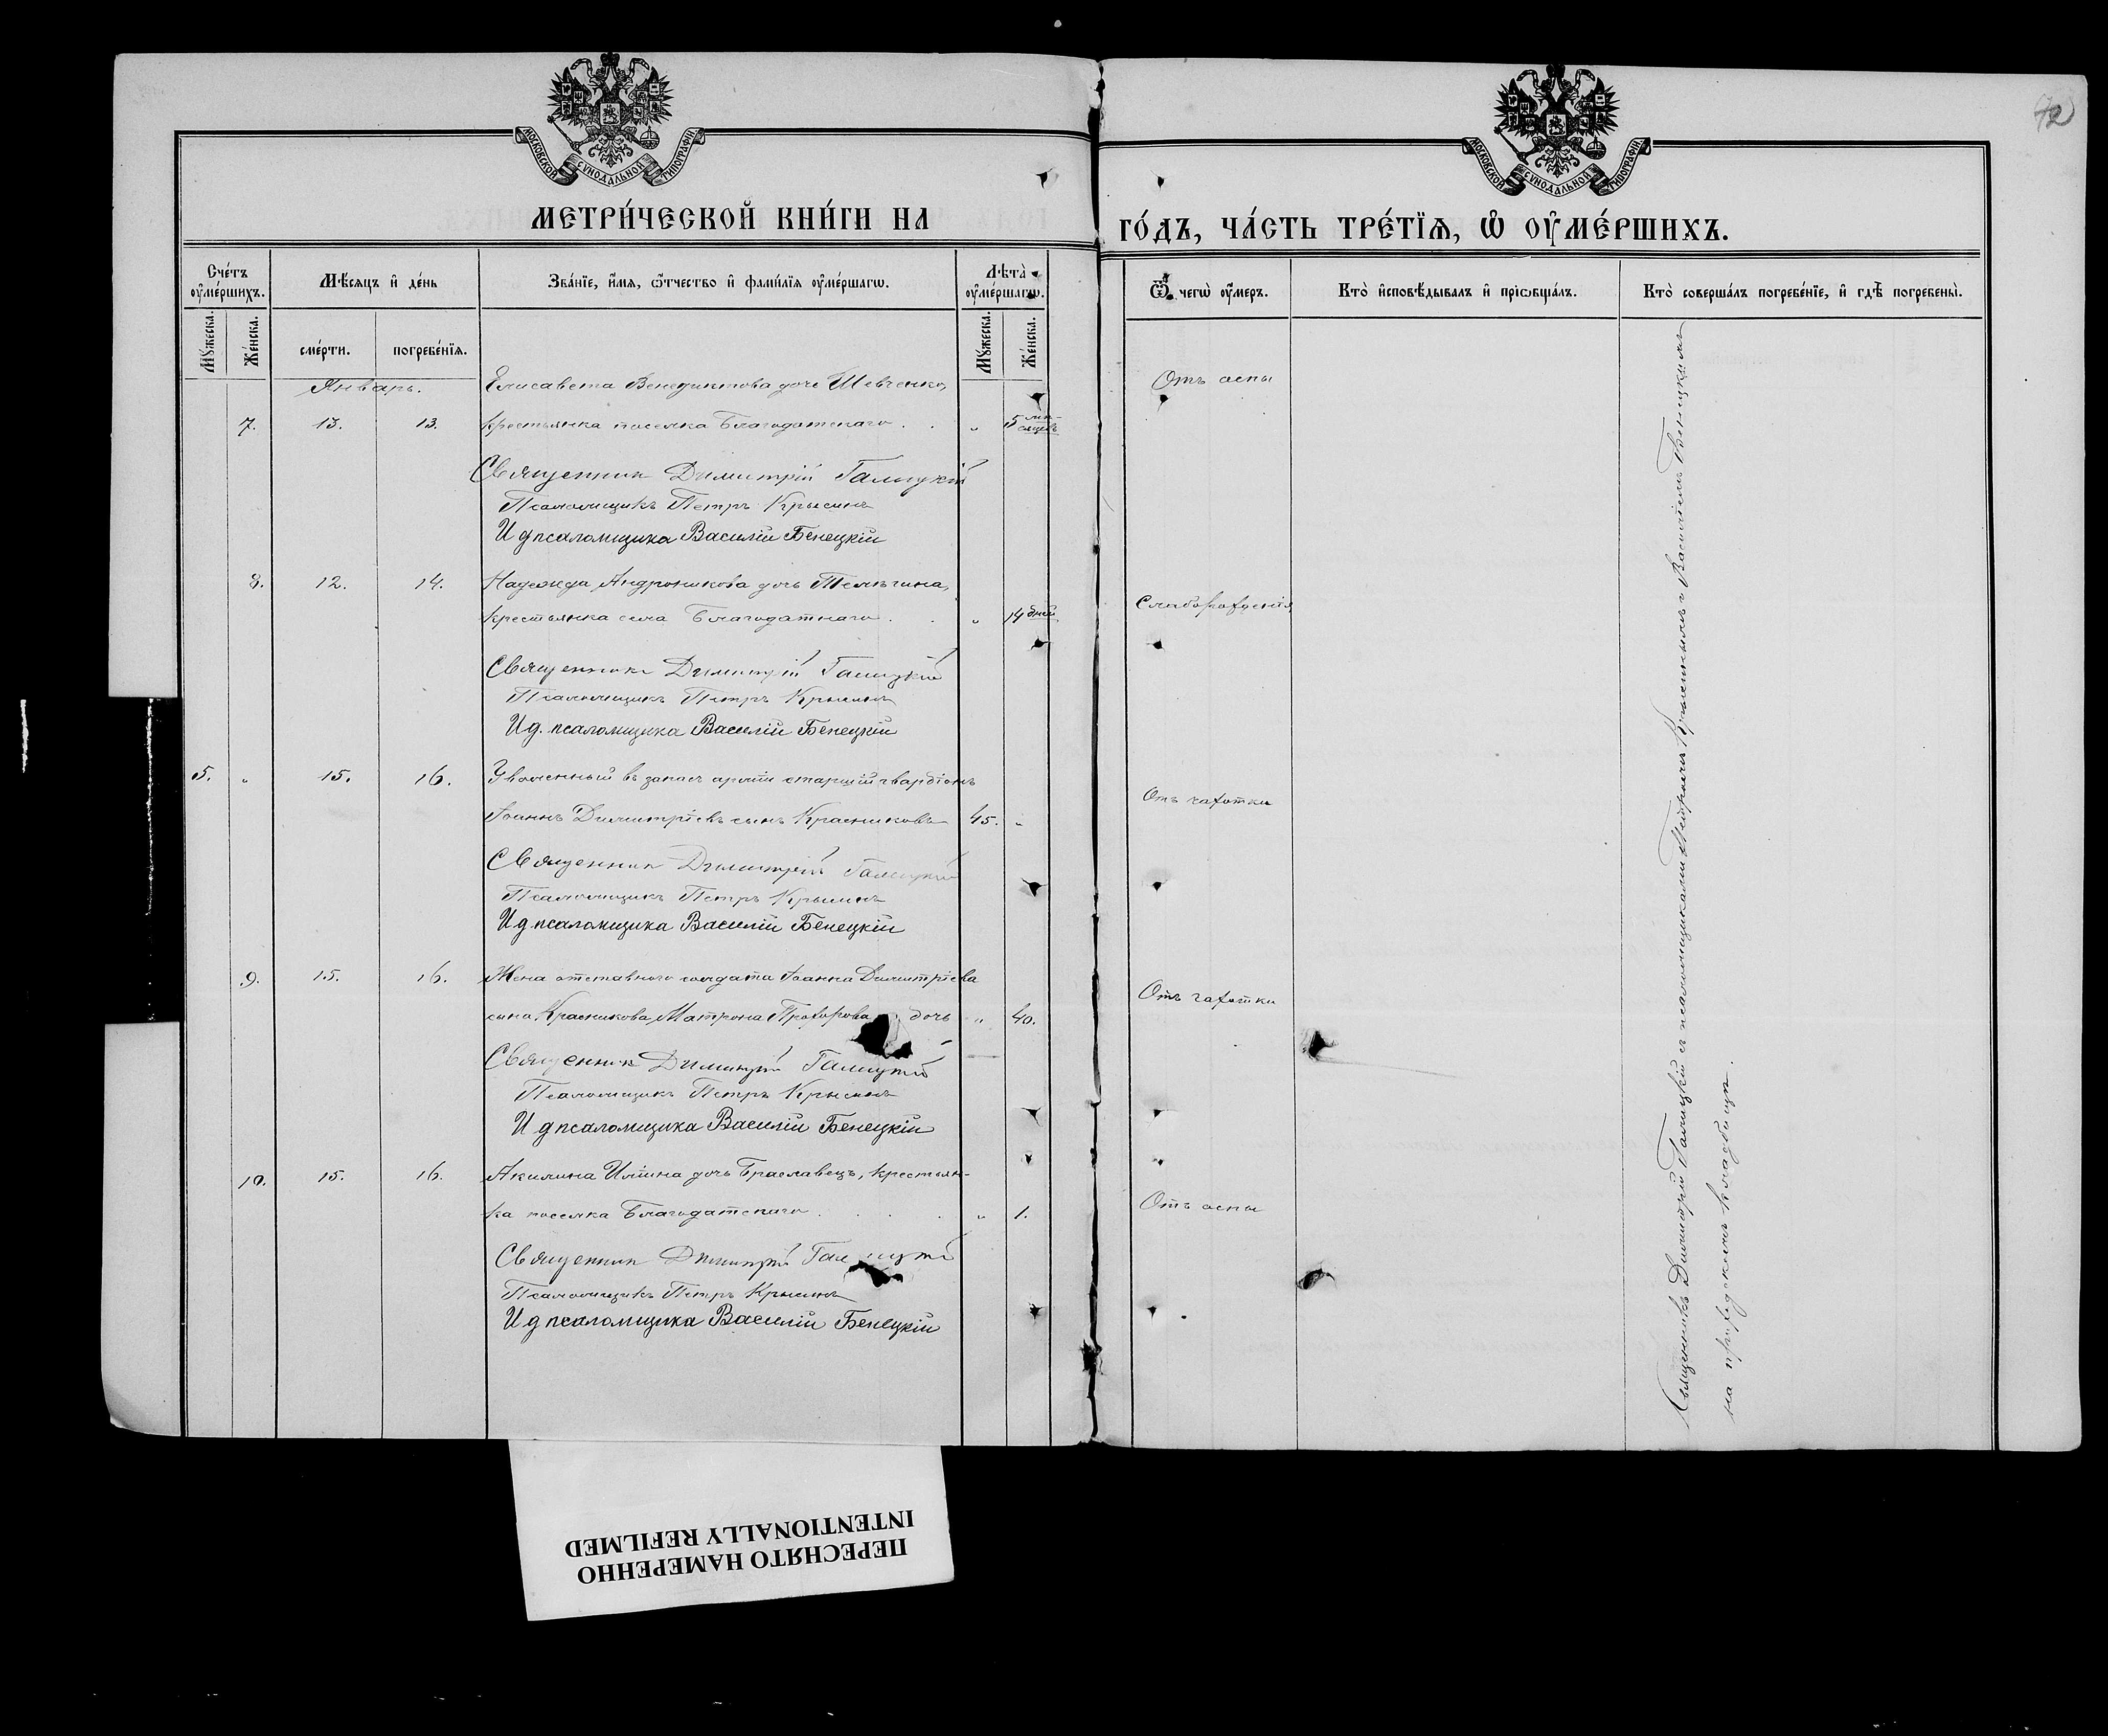 МОСКОВСКОЙ СѴНОДАЛЬНОЙ ТИПОГРАФІИ
МОСКОВСКОЙ СѴНОДАЛЬНОЙ ТИПОГРАФІИ
72
МЕТРИ́ЧЕСКОЙ КНИ́ГИ НА
ГО́ДЪ, ЧА́СТЬ ТРЕ́ТЇѦ, Ѡ҆ ОУ҆МЕ́РШИХЪ.
Сче́тъ оу҆ме́ршихъ.
Мѣ́сѧцъ и҆ де́нь
Зва́нїе, и҆́мѧ, ѻ҆́тчество и҆ фами́лїѧ оу҆ме́ршагѡ.
Лѣта̀ оу҆ме́ршагѡ.
Ѿ чегѡ̀ оу҆́меръ.
Кто̀ и҆сповѣ́дывалъ и҆ прїѡбща́лъ.
Кто̀ соверша́лъ погребе́нїе, и҆ гдѣ̀ погребены̀.
Мꙋ́жеска.
Же́нска.
сме́рти.
погребе́нїѧ.
Мꙋ́жеска.
Же́нска.
Январь.
Елисавета Венедиктова дочь Шевченко,
Отъ оспы
7. 13. 13. крестьянка поселка Благодатскаго . . „ 5 мѣсяцевъ
Священникъ Димитрій Галицкій
Псаломщикъ Петръ Крысинъ
И д псаломщика Василій Бенецкій
8. 12. 14. Надежда Андроникова дочь Телѣгина,
крестьянка села Благодатнаго . . „ 14 дней.
Слаборожденія
Священникъ Димитрій Галицкій
Псаломщикъ Петръ Крысинъ
И д. псаломщика Василій Бенецкій
5. „ 15. 16. Уволенный въ запасъ арміи старшій гвардіонъ
Отъ чахотки
Іоаннъ Димитріевъ сынъ Красниковъ 45. „
Священникъ Димитрій Галицкій
Псаломщикъ Петръ Крысинъ
И д псаломщика Василій Бенецкій
9. 15. 16. Жена отставнаго солдата Іоанна Димитріева
Отъ чахотки
сына Красникова Матрона Прохорова дочь „ 40.
Священникъ Димитрій Галицкій
Псаломщикъ Петръ Крысинъ
И д псаломщика Василій Бенецкій
10. 15. 16. Акилина Иліина дочь Браславецъ, крестьян-
ка поселка Благодатскаго . . . . „ 1.
Отъ оспы
Священникъ Димитрій Галицкій
Псаломщикъ Петръ Крысинъ
И д псаломщика Василій Бенецкій
Священникъ Димитрій Галицкій съ псаломщиками Петромъ Крысинымъ и Василіемъ Бенецкимъ
на приходскомъ кладбищѣ.
ПЕРЕСНЯТО НАМЕРЕННО
INTENTIONALLY REFILMED